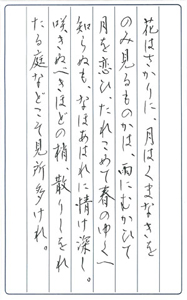 花はさかりに、月はくまなきを
のみ見るものかは、雨にむかひて
月を恋ひ、たれこめて春のゆくへ
知らぬも、なほあはれに情け深し。
咲きぬべきほどの梢、散りしをれ
たる庭などこそ見所多けれ。